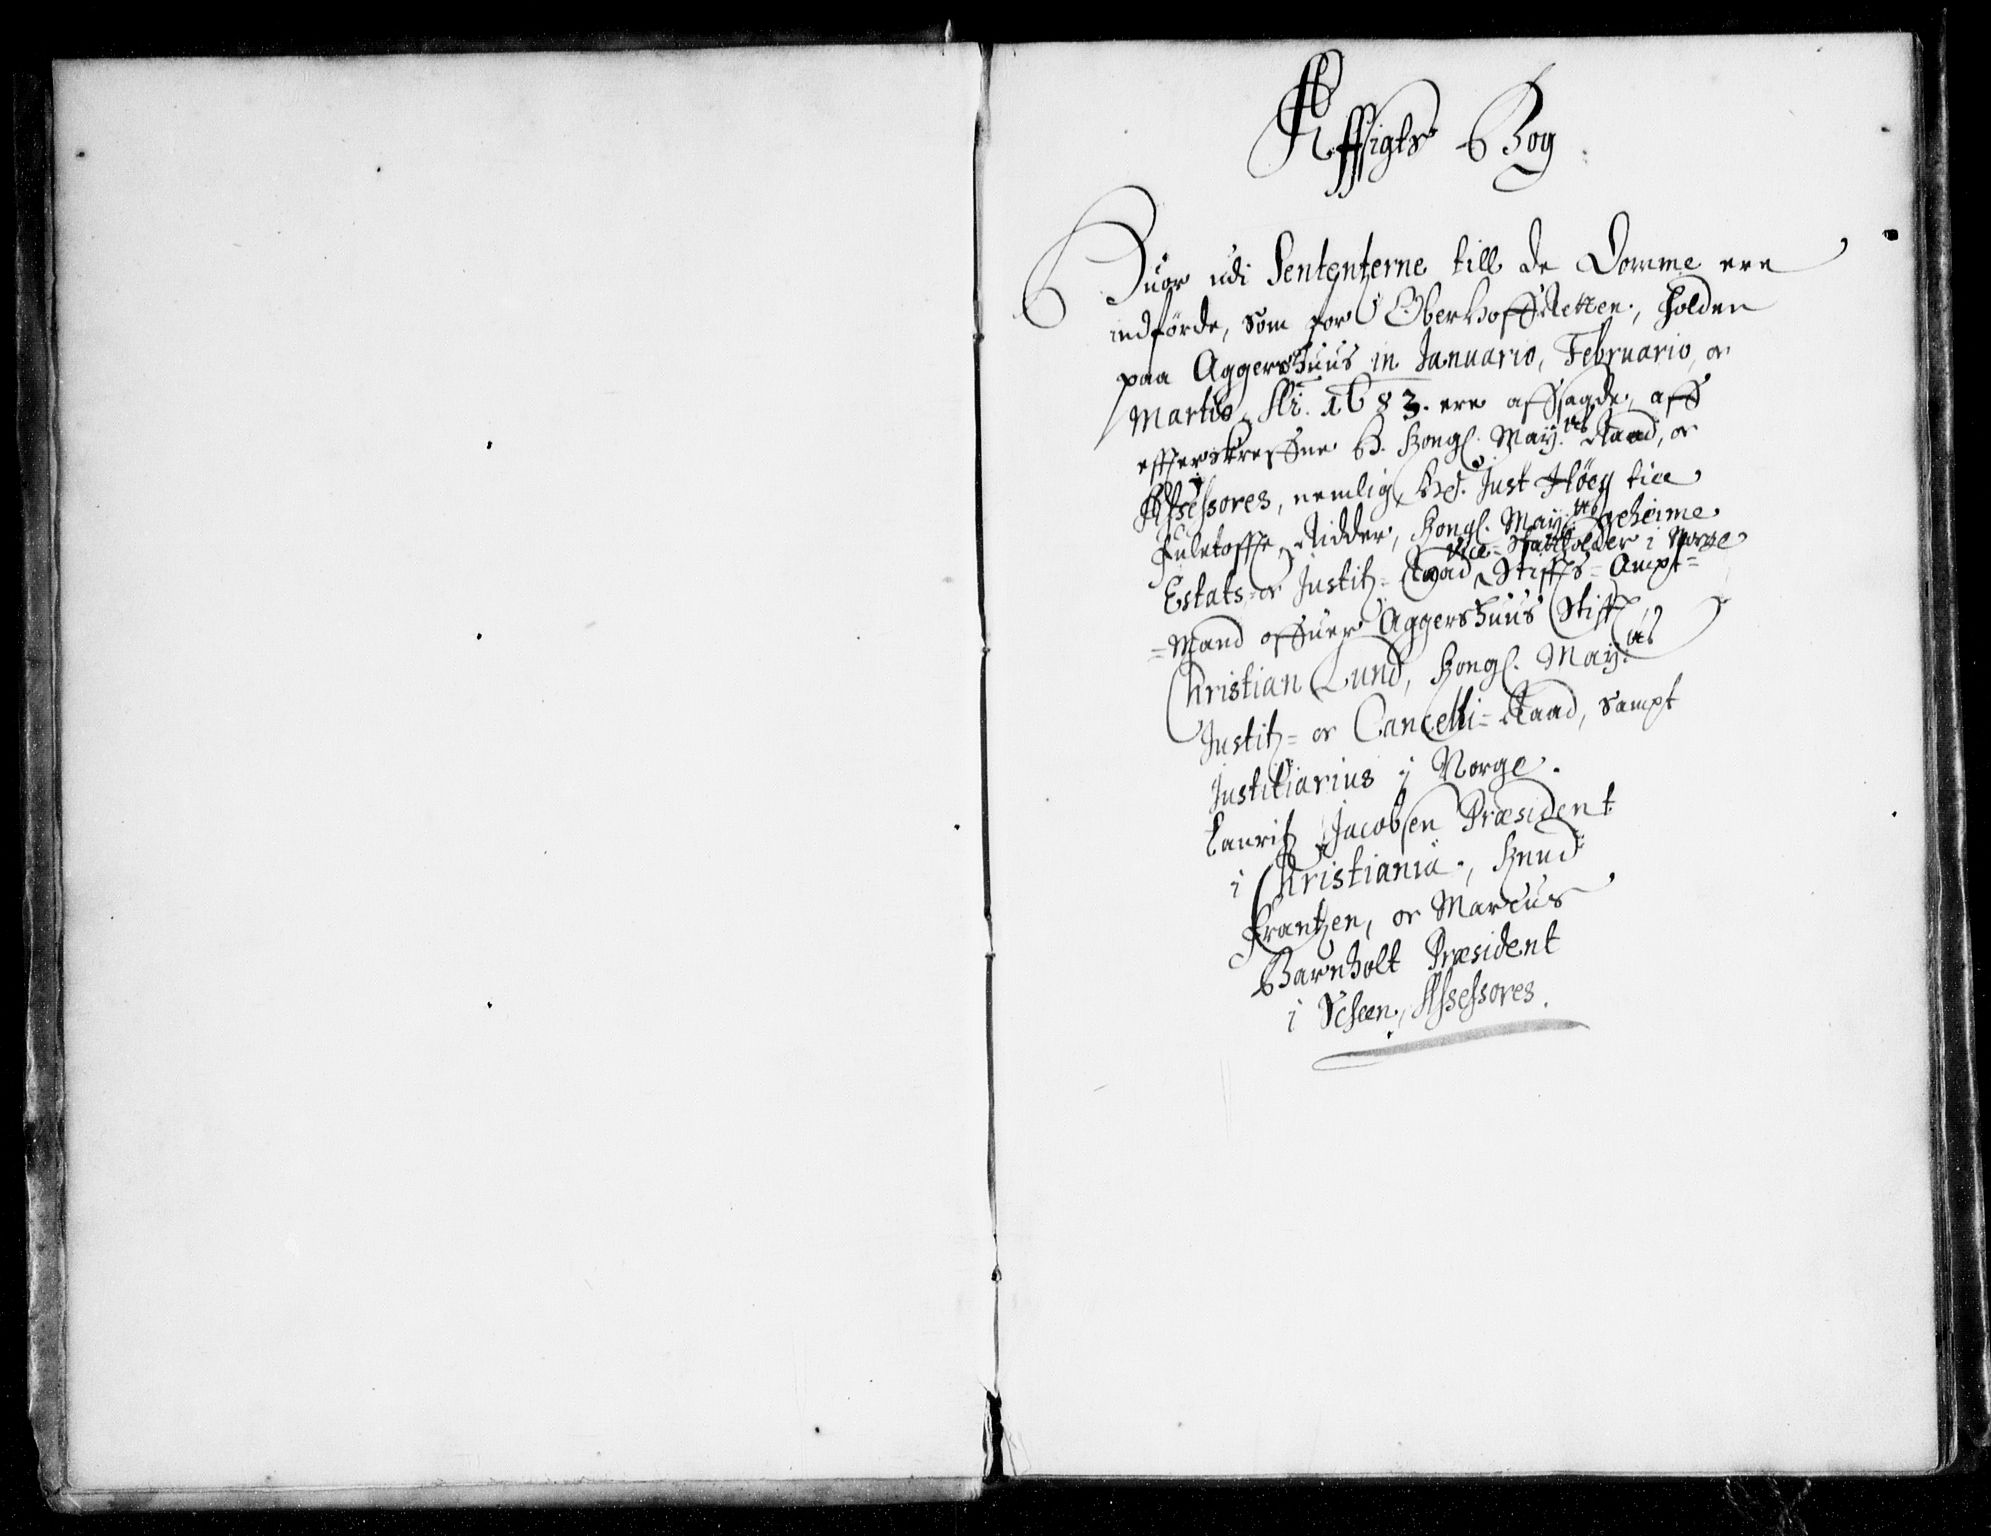 Affsigts Bog
Huor udi Sententzerne till de Domme ere
indförde, som for OberHoffRetten, holden
paa Aggershuus in Januario, Februario, oc
Martio Ai. 1683. ere affsagde, aff
effterskreffne H. Kongl. May.ts Raad, oc
Assessores, nemlig, Hr. Just Höeg till
Fuletofft, Ridder, Kongl. May.ts Geheime
Vice-Statholder i Norge
Estats- oc Justitz-Raad, Stiffts-Ampt-
-Mand offuer Aggershuus Stifft,
Christian Lund, Kongl. May.ts
Justitz- oc Cancelli-Raad, sampt
Justitiarius i Norge.
Lauritz Jacobsen Præsident
i Christiania, Knud
Frantzen, oc Marcus
Barnholt Præsident
i Scheen, Assessores.